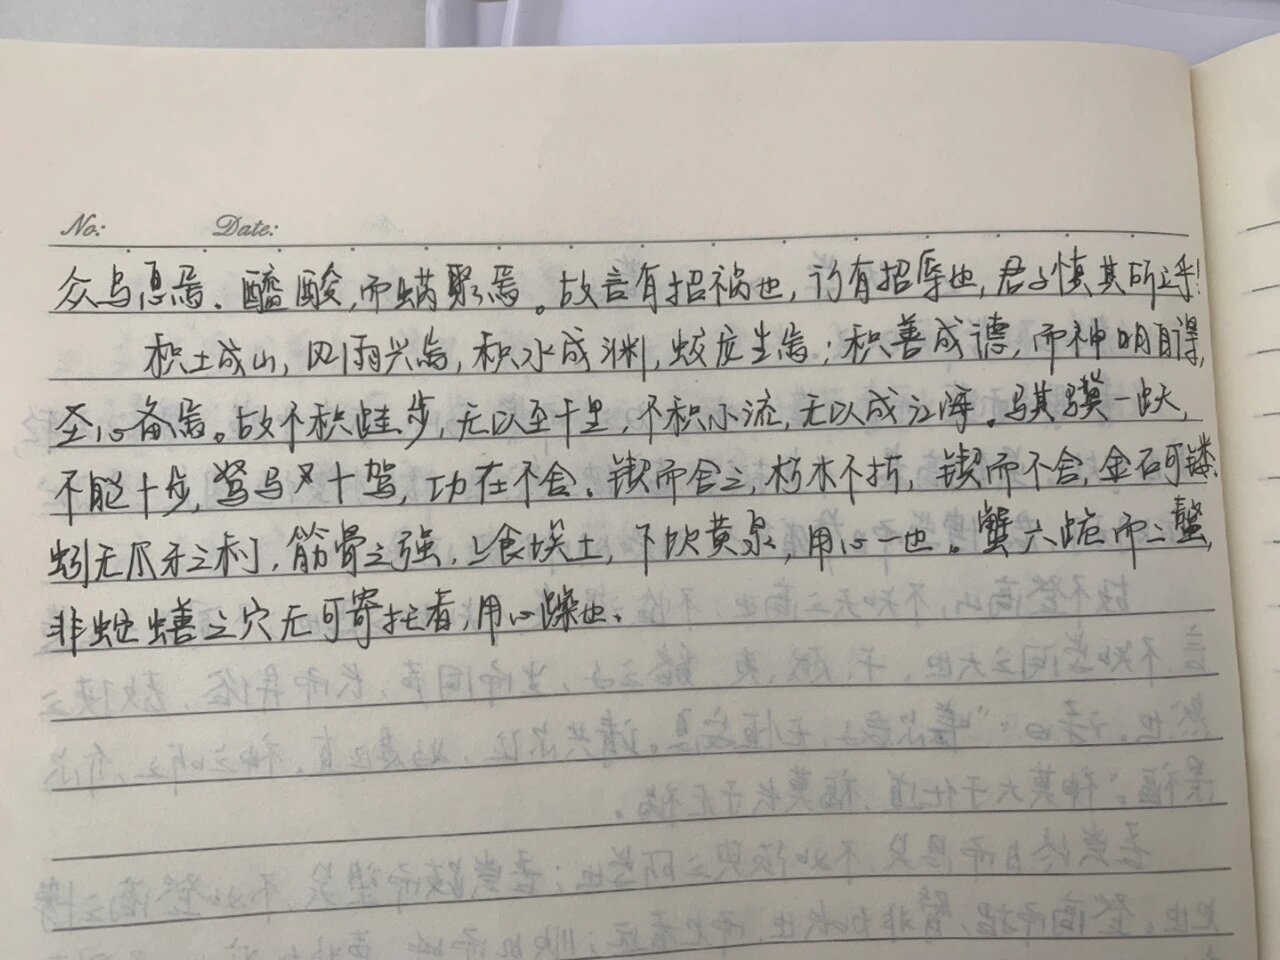 No: Date:
众鸟息焉。醯酸,而螨聚焉。故言有招祸也,行有招辱也,君子慎其所立乎!
积土成山,风雨兴焉,积水成渊,蛟龙生焉;积善成德,而神明自得,
圣心备焉。故不积跬步,无以至千里,不积小流,无以成江海。骐骥一跃,
不能十步,驽马十驾,功在不舍。锲而舍之,朽木不折,锲而不舍,金石可镂。
蚓无爪牙之利,筋骨之强,上食埃土,下饮黄泉,用心一也。蟹六跪而二螯,
非蛇蟮之穴无可寄托者,用心躁也。